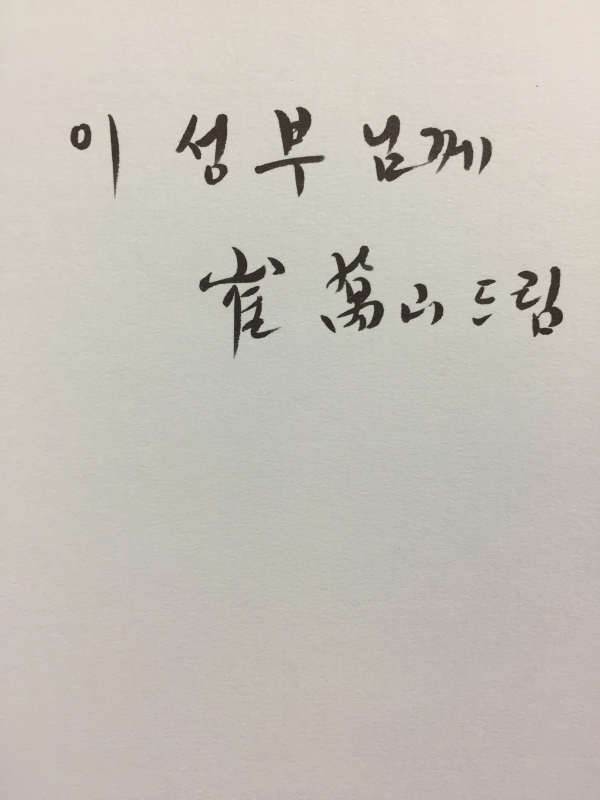 이 성부 님께
崔 萬山 드림